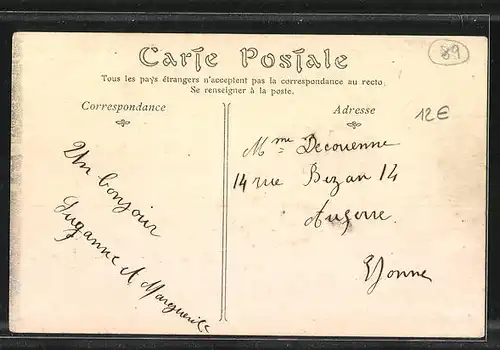 Carte Postale
89
Tous les pays étrangers n'acceptent pas la correspondance au recto.
Se renseigner à la poste.
Correspondance
Adresse
12€
Un bonjour
Suzanne et Marguerite
Mme Decouenne
14 rue Bezan 14
Auxerre.
Yonne